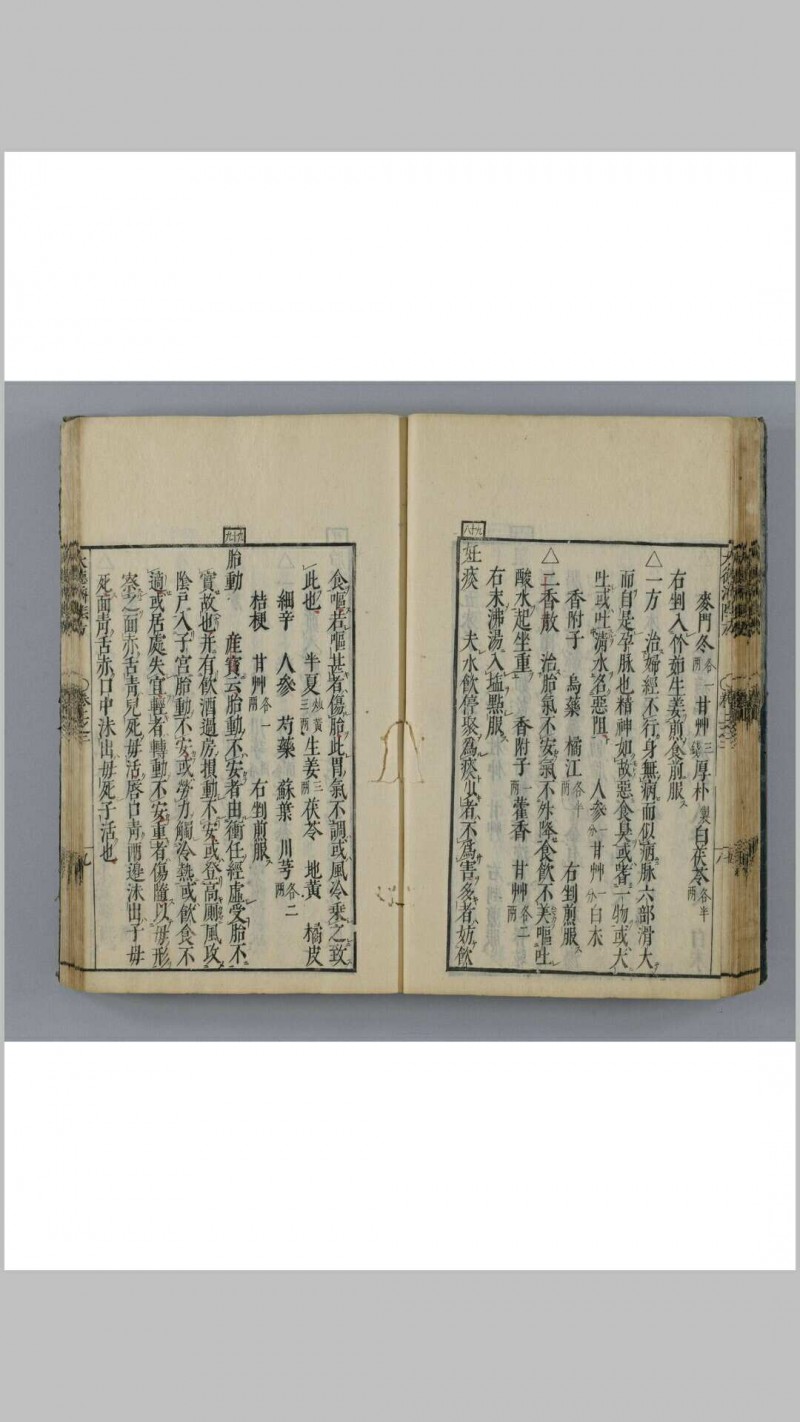 麥門冬各一兩甘艸三錢厚朴製白茯苓各半兩
右剉入竹茹生姜煎食前服
△一方　治婦經不行身無病而似病脉六部滑大
而自是孕脉也精神如故惡食臭或嗜一物或大
吐或吐淸水名惡阻　人參一分甘艸一分白朮
香附子　烏藥　橘江各半兩　右剉煎服
△二香散　治胎氣不安氣不升降食飮不美嘔吐
酸水起坐重　香附子一兩藿香　甘艸各二兩
右末沸湯入塩點服
九十八
妊痰　夫水飮停聚爲痰少者不爲害多者妨飮
食嘔若嘔甚者傷胎此胃氣不調或風冷乘之致
此也　半夏炒黃三兩生姜三兩茯苓　地黃　橘皮
細辛　人參　芍藥　蘇葉　川芎各二兩
桔梗　甘艸各一兩　右剉煎服
九十九
胎動　産寶云胎動不安者由衝任經虛受胎不
實故也并有飮酒過房損動不安或登高厠風攻
陰戸入子宮胎動不安或勞力觸冷熱或飮食不
適或居處失宜輕者轉動不安重者傷墮以母形
察之面赤舌靑兒死母活唇口靑兩邉沫出子母
死面靑舌赤口中沫出母死子活也